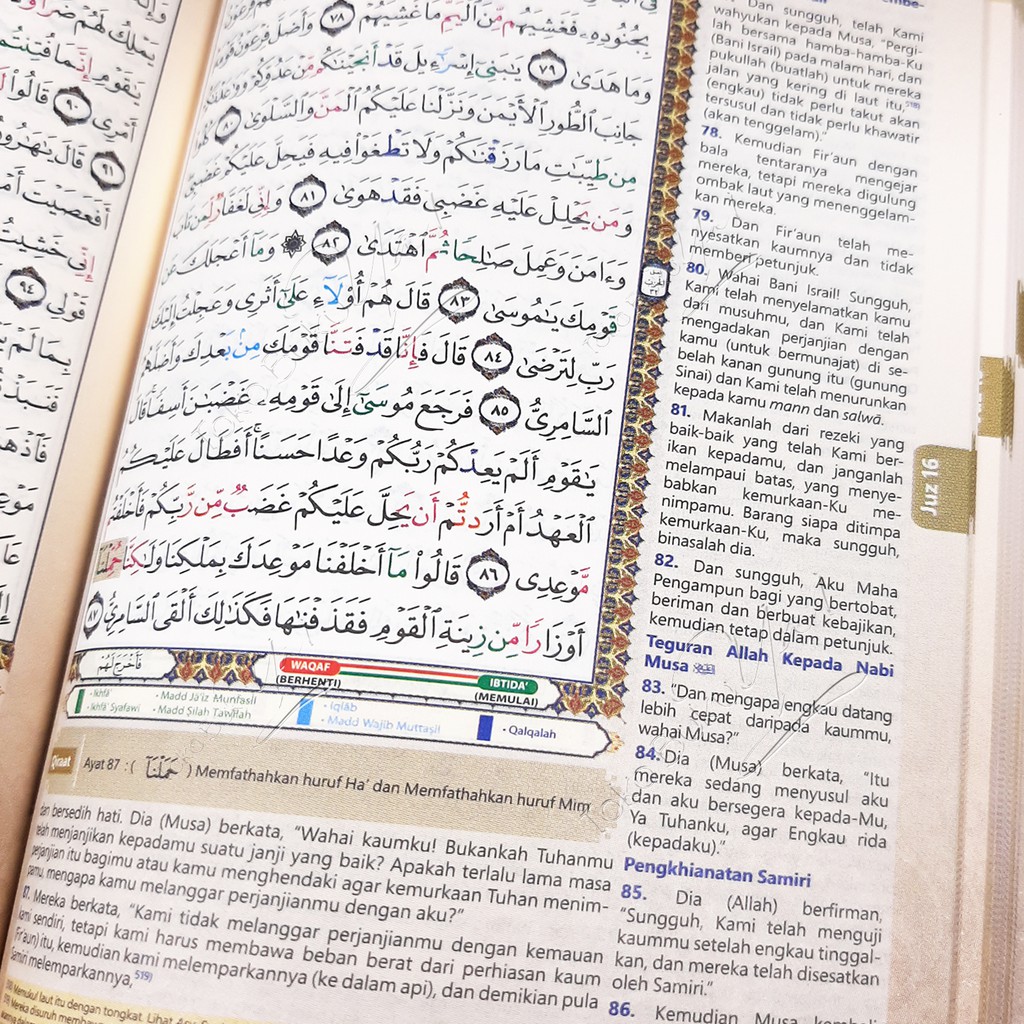 بِجُنُودِهِۦ فَغَشِيَهُم مِّنَ ٱلْيَمِّ مَا غَشِيَهُمْ ٧٨ وَأَضَلَّ فِرْعَوْنُ قَوْمَهُۥ
وَمَا هَدَىٰ ٧٩ يَٰبَنِىٓ إِسْرَٰٓءِيلَ قَدْ أَنجَيْنَٰكُم مِّنْ عَدُوِّكُمْ وَوَٰعَدْنَٰكُمْ
جَانِبَ ٱلطُّورِ ٱلْأَيْمَنَ وَنَزَّلْنَا عَلَيْكُمُ ٱلْمَنَّ وَٱلسَّلْوَىٰ ٨٠ كُلُوا۟
مِن طَيِّبَٰتِ مَا رَزَقْنَٰكُمْ وَلَا تَطْغَوْا۟ فِيهِ فَيَحِلَّ عَلَيْكُمْ غَضَبِى
وَمَن يَحْلِلْ عَلَيْهِ غَضَبِى فَقَدْ هَوَىٰ ٨١ وَإِنِّى لَغَفَّارٌ لِّمَن تَابَ
وَءَامَنَ وَعَمِلَ صَٰلِحًا ثُمَّ ٱهْتَدَىٰ ٨٢ ۞ وَمَآ أَعْجَلَكَ عَن
قَوْمِكَ يَٰمُوسَىٰ ٨٣ قَالَ هُمْ أُو۟لَآءِ عَلَىٰٓ أَثَرِى وَعَجِلْتُ إِلَيْكَ
رَبِّ لِتَرْضَىٰ ٨٤ قَالَ فَإِنَّا قَدْ فَتَنَّا قَوْمَكَ مِنۢ بَعْدِكَ وَأَضَلَّهُمُ
ٱلسَّامِرِىُّ ٨٥ فَرَجَعَ مُوسَىٰٓ إِلَىٰ قَوْمِهِۦ غَضْبَٰنَ أَسِفًا قَالَ
يَٰقَوْمِ أَلَمْ يَعِدْكُمْ رَبُّكُمْ وَعْدًا حَسَنًا أَفَطَالَ عَلَيْكُمُ
ٱلْعَهْدُ أَمْ أَرَدتُّمْ أَن يَحِلَّ عَلَيْكُمْ غَضَبٌ مِّن رَّبِّكُمْ فَأَخْلَفْتُم
مَّوْعِدِى ٨٦ قَالُوا۟ مَآ أَخْلَفْنَا مَوْعِدَكَ بِمَلْكِنَا وَلَٰكِنَّا حُمِّلْنَآ
أَوْزَارًا مِّن زِينَةِ ٱلْقَوْمِ فَقَذَفْنَٰهَا فَكَذَٰلِكَ أَلْقَى ٱلسَّامِرِىُّ ٨٧
فَأَخْرَجَ لَهُمْ
WAQAF
(BERHENTI)
IBTIDA'
(MEMULAI)
• Ikhfā'
• Ikhfā' Syafawi
• Madd Jā'iz Munfasil
• Madd Silah Tawilah
• Iqlāb
• Madd Wajib Muttasil
• Qalqalah
Qiraat
Ayat 87 : ( حَمَلْنَا ) Memfathahkan huruf Ha' dan Memfathahkan huruf Mim
dan bersedih hati. Dia (Musa) berkata, "Wahai kaumku! Bukankah Tuhanmu
telah menjanjikan kepadamu suatu janji yang baik? Apakah terlalu lama masa
perjanjian itu bagimu atau kamu menghendaki agar kemurkaan Tuhan menim-
pamu, mengapa kamu melanggar perjanjianmu dengan aku?"
87. Mereka berkata, "Kami tidak melanggar perjanjianmu dengan kemauan
kami sendiri, tetapi kami harus membawa beban berat dari perhiasan kaum
Fir'aun) itu, kemudian kami melemparkannya (ke dalam api), dan demikian pula
Samiri melemparkannya,519)
Dan sungguh, telah Kami
wahyukan kepada Musa, "Pergi-
lah bersama hamba-hamba-Ku
(Bani Israil) pada malam hari, dan
pukullah (buatlah) untuk mereka
jalan yang kering di laut itu,518)
(engkau) tidak perlu takut akan
tersusul dan tidak perlu khawatir
(akan tenggelam)."
78. Kemudian Fir'aun dengan
bala tentaranya mengejar
mereka, tetapi mereka digulung
ombak laut yang menenggelam-
kan mereka.
79. Dan Fir'aun telah me-
nyesatkan kaumnya dan tidak
memberi petunjuk.
80. Wahai Bani Israil! Sungguh,
Kami telah menyelamatkan kamu
dari musuhmu, dan Kami telah
mengadakan perjanjian dengan
kamu (untuk bermunajat) di se-
belah kanan gunung itu (gunung
Sinai) dan Kami telah menurunkan
kepada kamu mann dan salwā.
81. Makanlah dari rezeki yang
baik-baik yang telah Kami ber-
ikan kepadamu, dan janganlah
melampaui batas, yang menye-
babkan kemurkaan-Ku me-
nimpamu. Barang siapa ditimpa
kemurkaan-Ku, maka sungguh,
binasalah dia.
82. Dan sungguh, Aku Maha
Pengampun bagi yang bertobat,
beriman dan berbuat kebajikan,
kemudian tetap dalam petunjuk.
Teguran Allah Kepada Nabi
Musa
83. "Dan mengapa engkau datang
lebih cepat daripada kaummu,
wahai Musa?"
84. Dia (Musa) berkata, "Itu
mereka sedang menyusul aku
dan aku bersegera kepada-Mu,
Ya Tuhanku, agar Engkau rida
(kepadaku)."
Pengkhianatan Samiri
85. Dia (Allah) berfirman,
"Sungguh, Kami telah menguji
kaummu setelah engkau tinggal-
kan, dan mereka telah disesatkan
oleh Samiri."
86. Kemudian Musa kembali
Juz 16